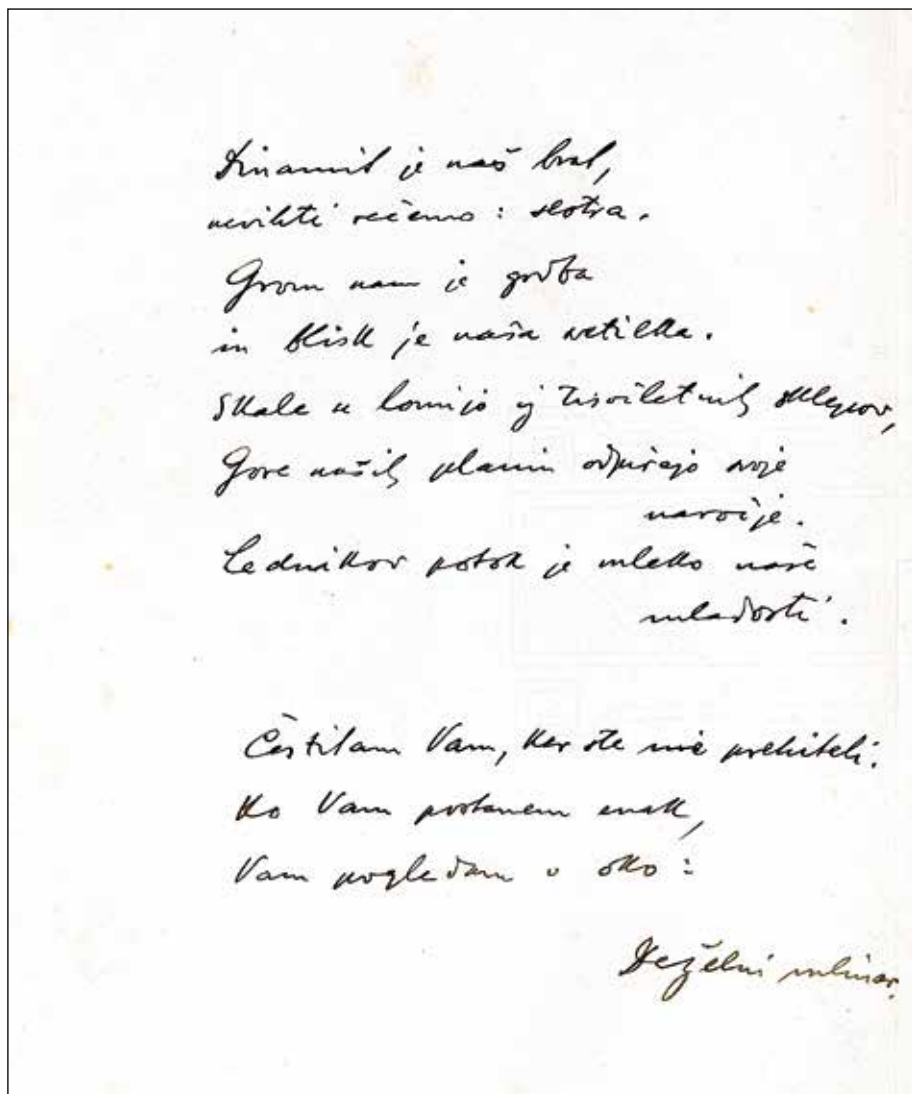 Dinamit je naš brat,
nevihti rečemo: sestra.
Grom nam je godba
in blisk je naša svetilka.
Skale se lomijo iz tisočletnih sklepov,
Gore naših planin odpirajo svoje
naročje.
Lednikov potok je mleko naše
mladosti.
Čestitam Vam, ker ste me prehiteli.
Ko Vam postanem enak,
Vam pogledam v oko:
Deželni mlinar.